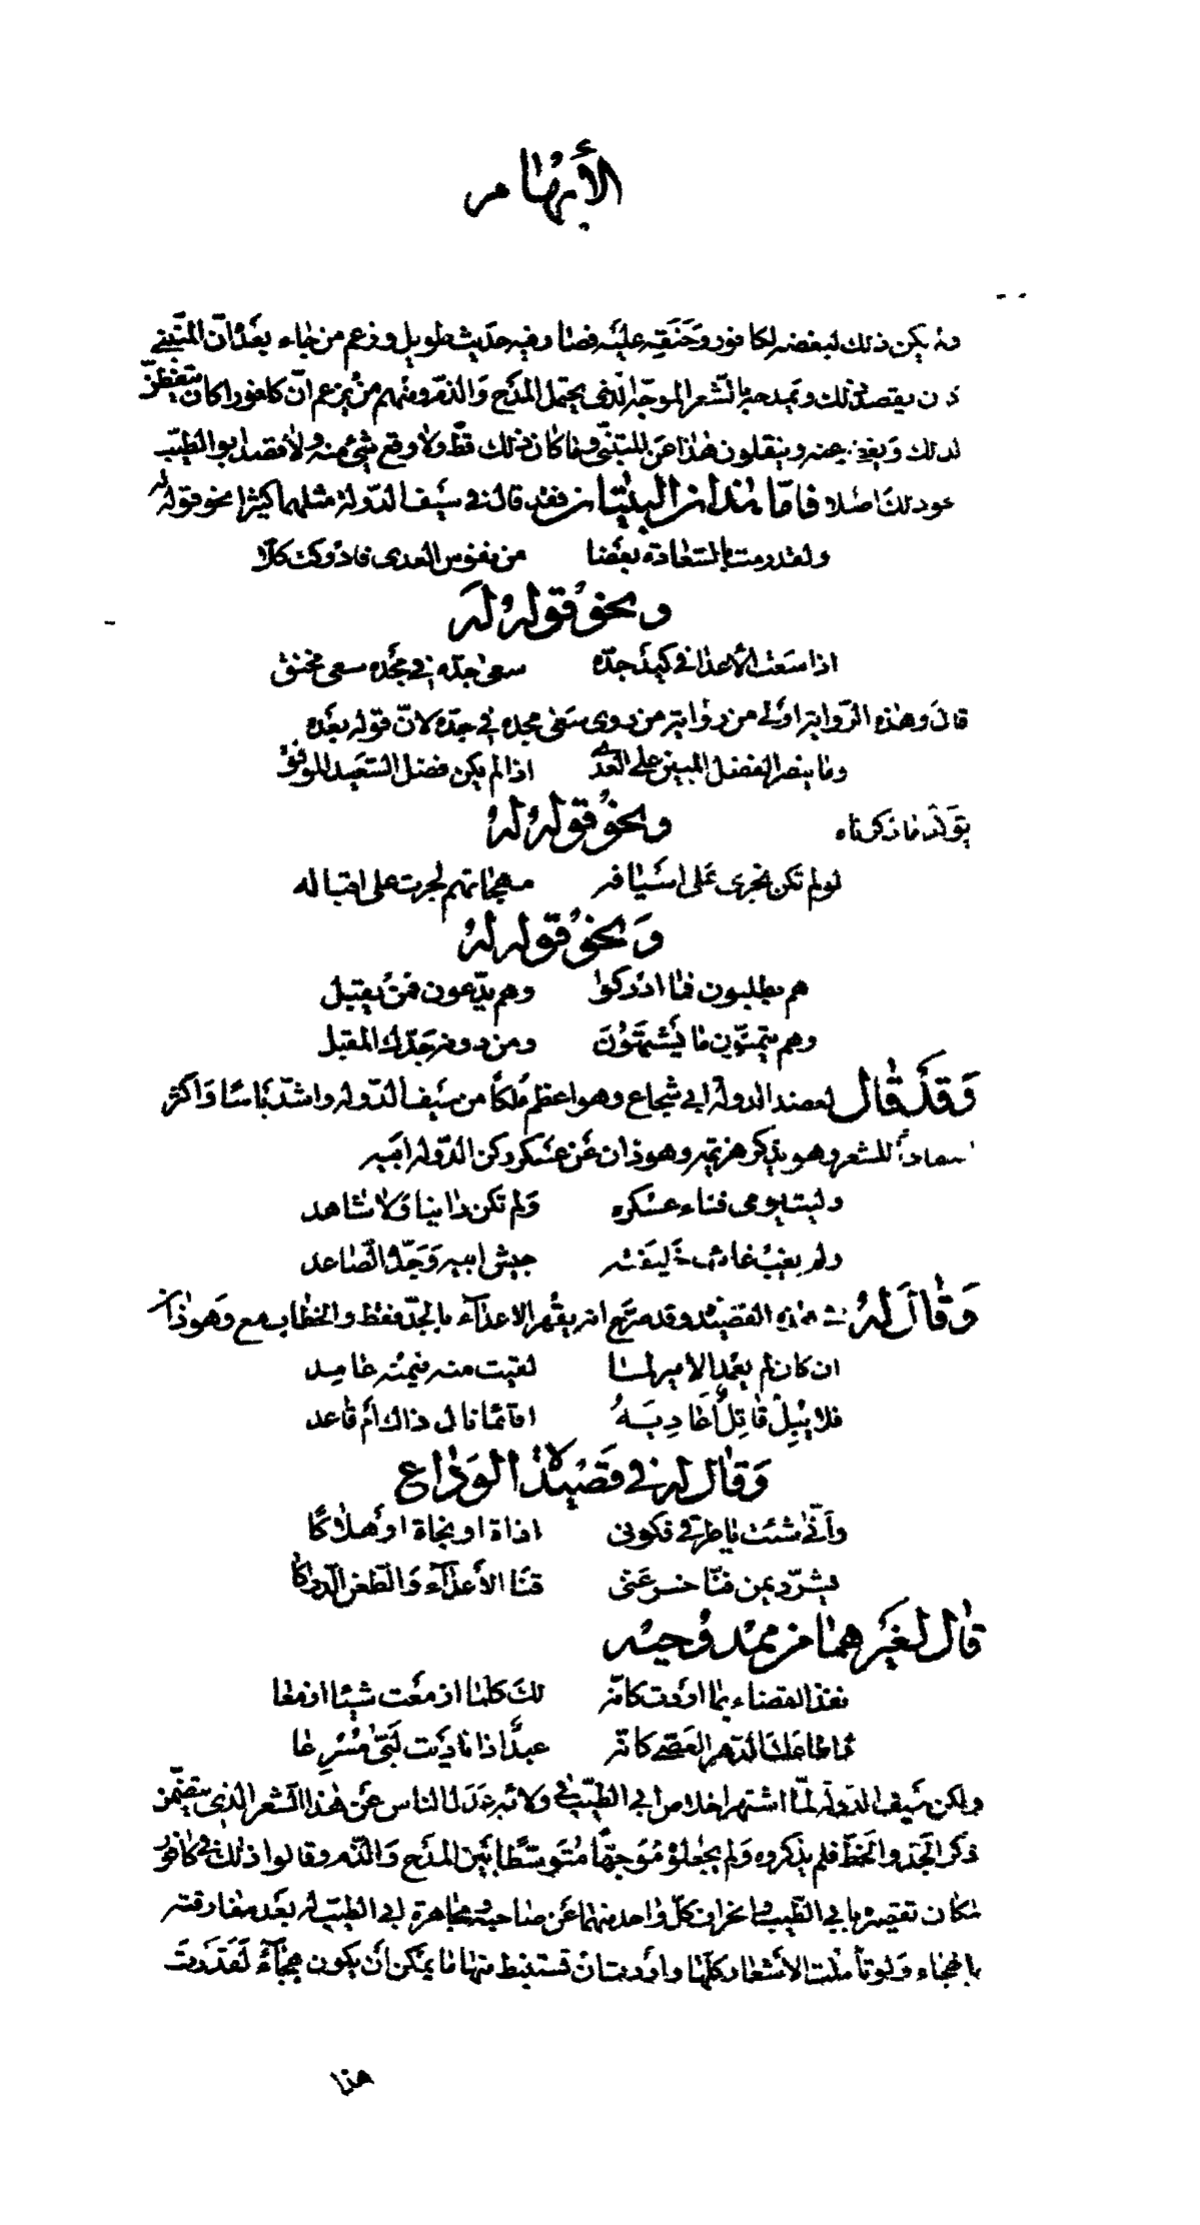 الإبهام
ولم يكن ذلك لبغضه لكافور وحنقه عليه فصار وفيه حديث طويل وزعم من جاء بعد ان المتنبي
كان يقصد ذلك ويمدحه بالشعر الموجه الذى يحتمل المدح والذم ومنهم من يزعم ان كافورا كان يتفطن
لذلك وينقلون هذا عن المتنبى وما كان ذلك قط ولا وقع شئ منه ولا قصد ابو الطيب
نحو ذلك اصلا فاما هذان البيتان فقد قال فى سيف الدولة مثلهما كثيرا نحو قوله له
ولقد رمت بالسعادة بعضا من نفوس العدى فادركت كلا
ونحو قوله له
اذا سعت الأعداء فى كيد جده سعى جده فى مجده سعى محنق
قال وهذه الرواية اولى من رواية من روى سعى مجده فى جده لان قوله بعده
وما ينصر الفضل المبين على العدى اذا لم يكن فضل السعيد الموفق
ما ذكرناه ونحو قوله له
لو لم تكن تجرى على اسيافه مهجاتهم لجرت على اقباله
ونحو قوله له
هم يطلبون فما ادركوا وهم يدعون فمن يقبل
وهم يتمنون ما يشتهون ومن دونه جدك المقبل
وقد قال لعضد الدولة ابى شجاع وهو اعظم ملكا من سيف الدولة واشد باسا واكثر
للشعر وهو يذكر هزيمة وهوذان عن عسكر ركن الدولة ابيه
وليت يومى فناء عسكره ولم تكن دانيا ولا شاهد
ولم يغب غائب خليفته جيش ابيه وجده الصاعد
وقال له هذه القصيدة وقد صرح انه يقهر الاعداء بالجد فقط والخطاب مع وهوذان
ان كان لم يعمد الامير لما لقيت منه فيمنه عامد
فلا يبل قاتل اعاديه اقائما نال ذاك ام قاعد
وقال له فى قصيدة الوداع
وأنى شئت يا طرقى فكونى اذاة او نجاة او هلاكا
يشرد يمن فنا خسر عنى قنا الأعداء والطعن الدراكا
قال لغيرهما من ممدوحيه
نفذ القضاء بما اردت كانه لك كلما ازمعت شيئا ازمعا
واطاعك الدهر العصى كانه عبد اذا ناديت لبى مسرعا
ولكن سيف الدولة لما اشتهر اخلاص ابى الطيب فى ولائه عدل الناس عن هذا الشعر الذى يتضمن
ذكر الجد والحظ فلم يذكروه ولم يجعلوه موجها متوسطا بين المدح والذم وقالوا ذلك فى كافور
لمكان تقصيره بابى الطيب وانحراف كل واحد منهما عن صاحبه ومجاهرة ابى الطيب له بعد مفارقته
بالهجاء ولو تأملت الأشعار كلها واردت ان تستنبط منها ما يمكن أن يكون هجاء لقدرت
هذا